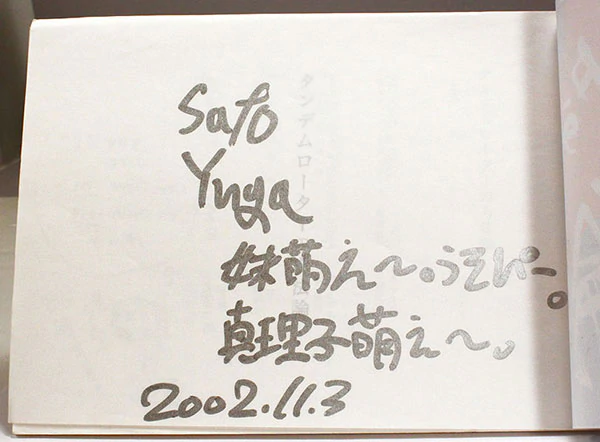 Sato
Yuya
妹萌え〜。うそぴー。
真理子萌え〜。
2002.11.3
タンデムローター